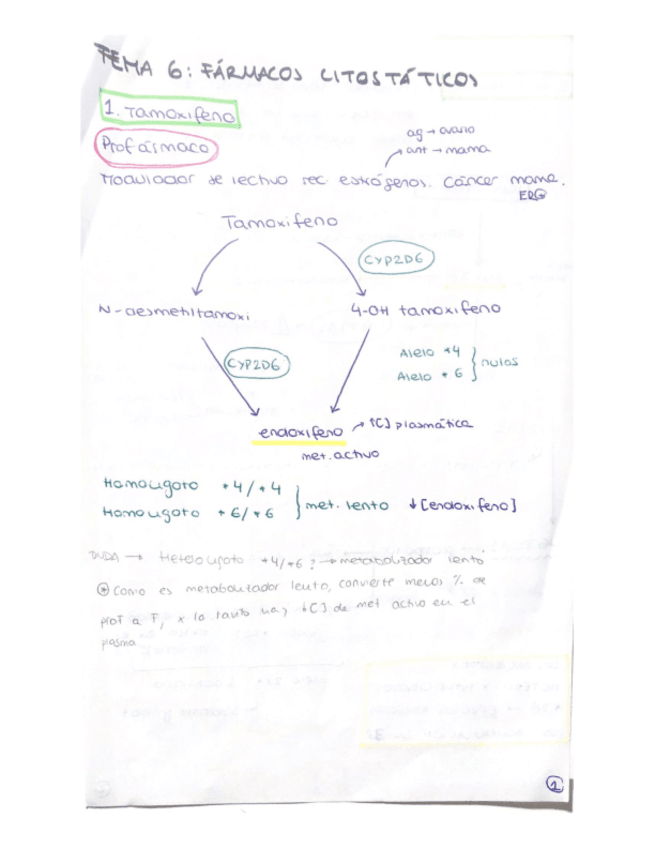 TEMA 6: FÁRMACOS CITOSTÁTICOS
1. Tamoxifeno
Profármaco
ag → ovario
ant → mama
Modulador selectivo rec. estrógenos. Cáncer mama.
ER⊕
Tamoxifeno
CYP2D6
N-desmetiltamoxi
4-OH tamoxifeno
CYP2D6
Alelo *4
Alelo *6
nulos
endoxifeno → ↑[C] plasmática
met. activo
Homocigoto *4/*4
Homocigoto *6/*6
met. lento ↓[endoxifeno]
DUDA → Heterocigoto *4/*6? → metabolizador lento
⊛ Como es metabolizador lento, convierte menos % de
prof a F, x lo tanto hay ↓[C] de met activo en el
plasma
1